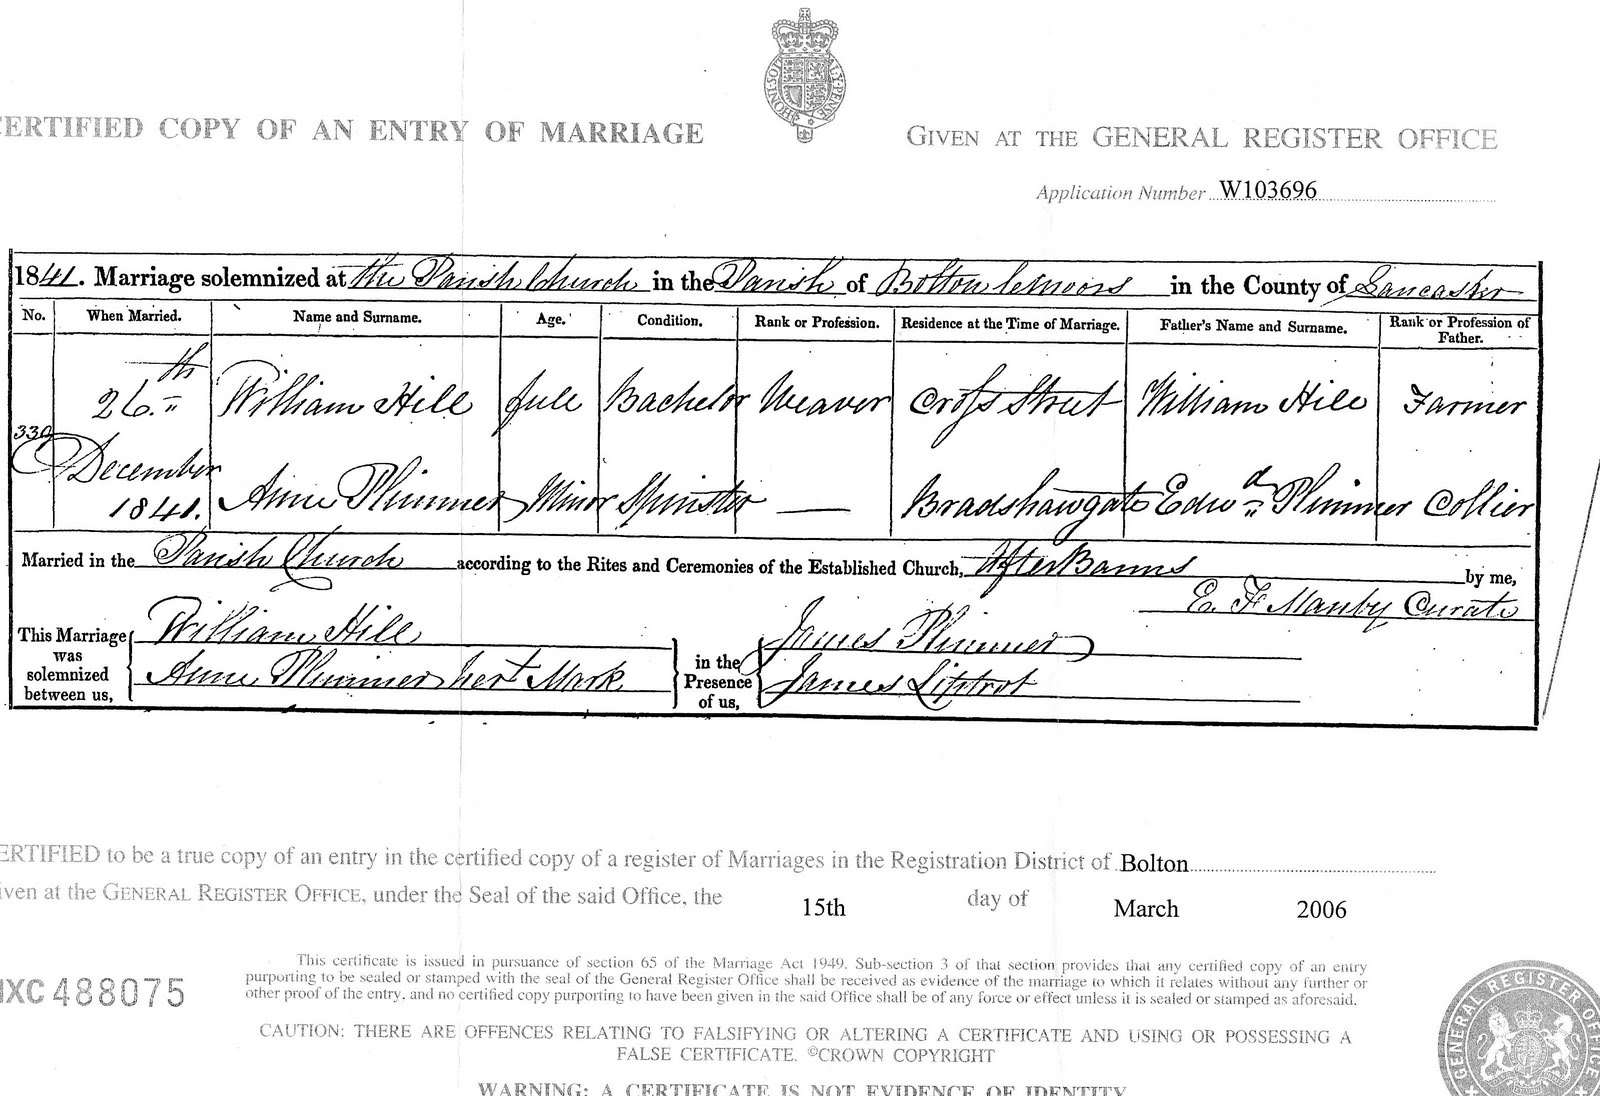 CERTIFIED COPY OF AN ENTRY OF MARRIAGE
GIVEN AT THE GENERAL REGISTER OFFICE
Application Number W103696
1841. Marriage solemnized at the Parish Church in the Parish of Bolton le Moors in the County of Lancaster
No. When Married. Name and Surname. Age. Condition. Rank or Profession. Residence at the Time of Marriage. Father's Name and Surname. Rank or Profession of Father.
26th William Hill full Bachelor Weaver Cross Street William Hill Farmer
339
December
1841. Anne Plimmer Minor Spinster — Bradshawgate Edwd Plimmer Collier
Married in the Parish Church according to the Rites and Ceremonies of the Established Church, After Banns by me,
E. F Manby Curate
This Marriage was solemnized between us,
William Hill
Anne Plimmer her + Mark
in the Presence of us,
James Plimmer
James Liptrot
CERTIFIED to be a true copy of an entry in the certified copy of a register of Marriages in the Registration District of Bolton
Given at the GENERAL REGISTER OFFICE, under the Seal of the said Office, the 15th day of March 2006
This certificate is issued in pursuance of section 65 of the Marriage Act 1949. Sub-section 3 of that section provides that any certified copy of an entry
purporting to be sealed or stamped with the seal of the General Register Office shall be received as evidence of the marriage to which it relates without any further or
other proof of the entry, and no certified copy purporting to have been given in the said Office shall be of any force or effect unless it is sealed or stamped as aforesaid.
MXC 488075
CAUTION: THERE ARE OFFENCES RELATING TO FALSIFYING OR ALTERING A CERTIFICATE AND USING OR POSSESSING A
FALSE CERTIFICATE. ©CROWN COPYRIGHT
WARNING: A CERTIFICATE IS NOT EVIDENCE OF IDENTITY.
GENERAL REGISTER OFFICE